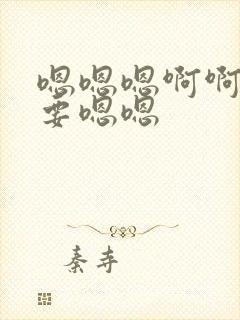 嗯嗯嗯啊啊
要嗯嗯
秦寺